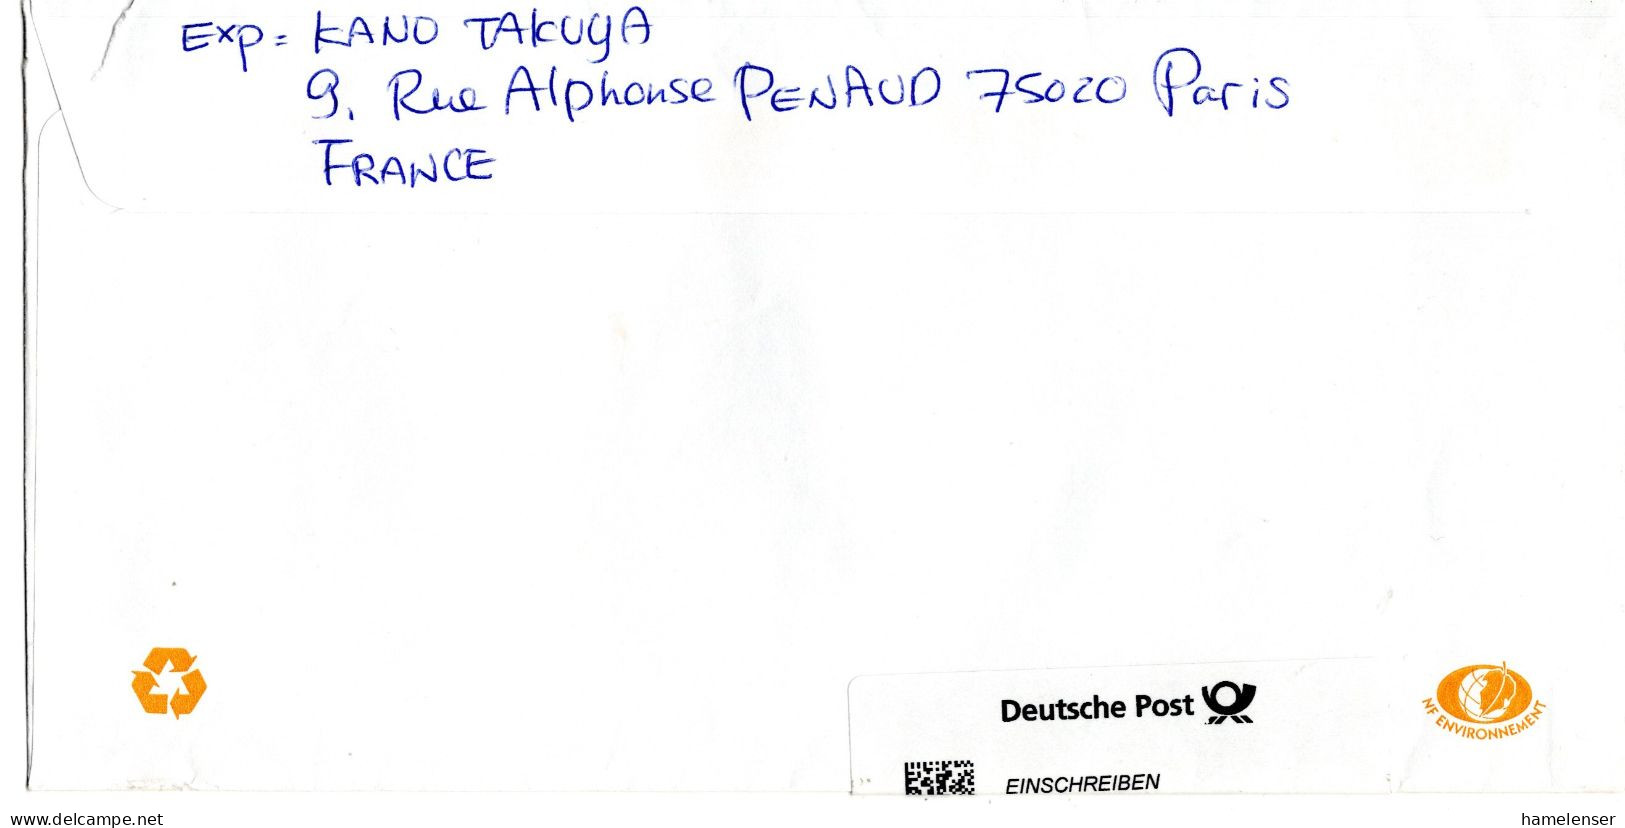 Exp: KANO TAKUYA
9, Rue Alphonse PENAUD 75020 Paris
FRANCE
Deutsche Post
EINSCHREIBEN
NF ENVIRONNEMENT
www.delcampe.net
hamelenser